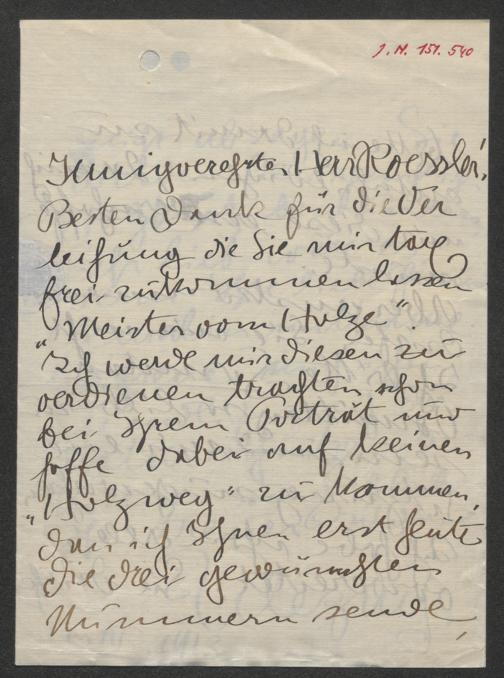 J.N. 151.540
Innigverehrter Herr Roessler,
Besten Dank für die Ver
leihung die Sie mir tax
frei zukommen lassen
"Meister vom Holze".
Ich werde mir diesen zu
verdienen trachten, schon
bei Ihrem Porträt und
hoffe dabei auf keinen
"Holzweg" zu kommen,
dan ich Ihnen erst heute
die drei gewünschten
Nummern sende,